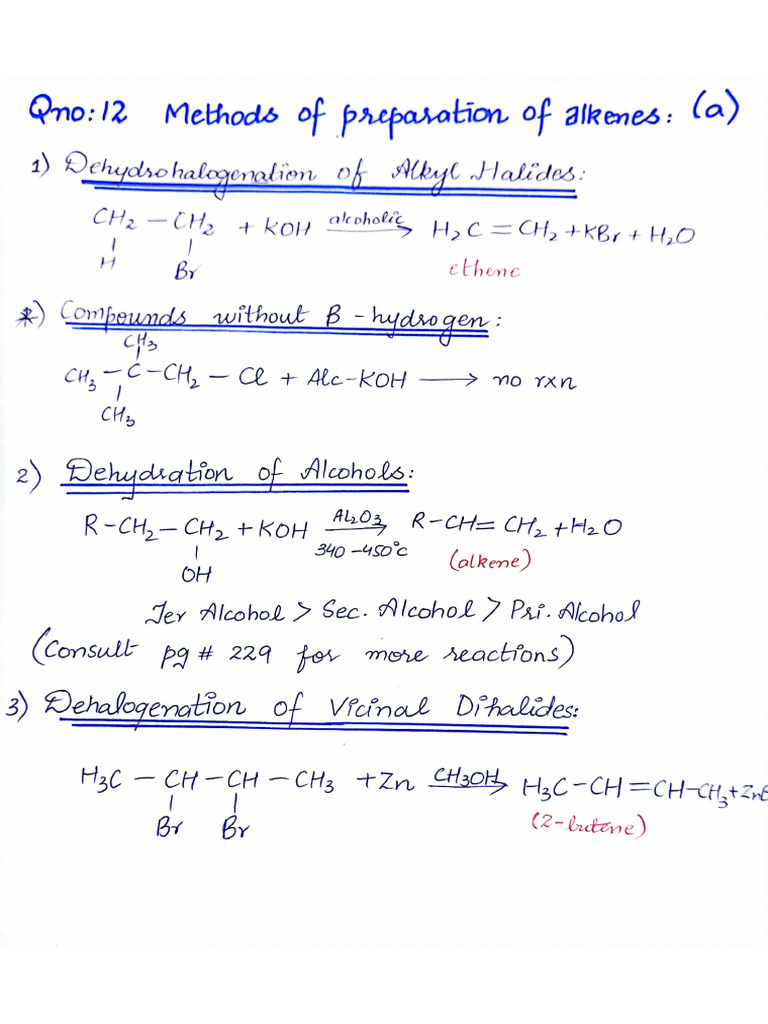 Qno:12 Methods of preparation of alkenes: (a)
1) Dehydrohalogenation of Alkyl Halides:
CH₂ — CH₂ + KOH alcoholic → H₂C = CH₂ + KBr + H₂O
H Br ethene
*) Compounds without B - hydrogen:
CH₃
CH₃ — C — CH₂ — Cl + Alc-KOH → no rxn
CH₃
2) Dehydration of Alcohols:
R-CH₂ — CH₂ + KOH Al₂O₃ → R-CH = CH₂ + H₂O
340-450°C
OH (alkene)
Ter Alcohol > Sec. Alcohol > Pri. Alcohol
(Consult pg # 229 for more reactions)
3) Dehalogenation of Vicinal Dihalides:
H₃C — CH — CH — CH₃ + Zn CH₃OH → H₃C-CH = CH-CH₃ + ZnB
Br Br (2-butene)